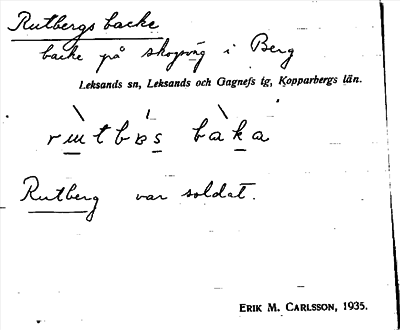 Rutbergs backe
backe på skogsväg i Berg
Leksands sn, Leksands och Gagnefs tg, Kopparbergs län.
bàka
Rutberg var soldat.
ERIK M. CARLSSON, 1935.